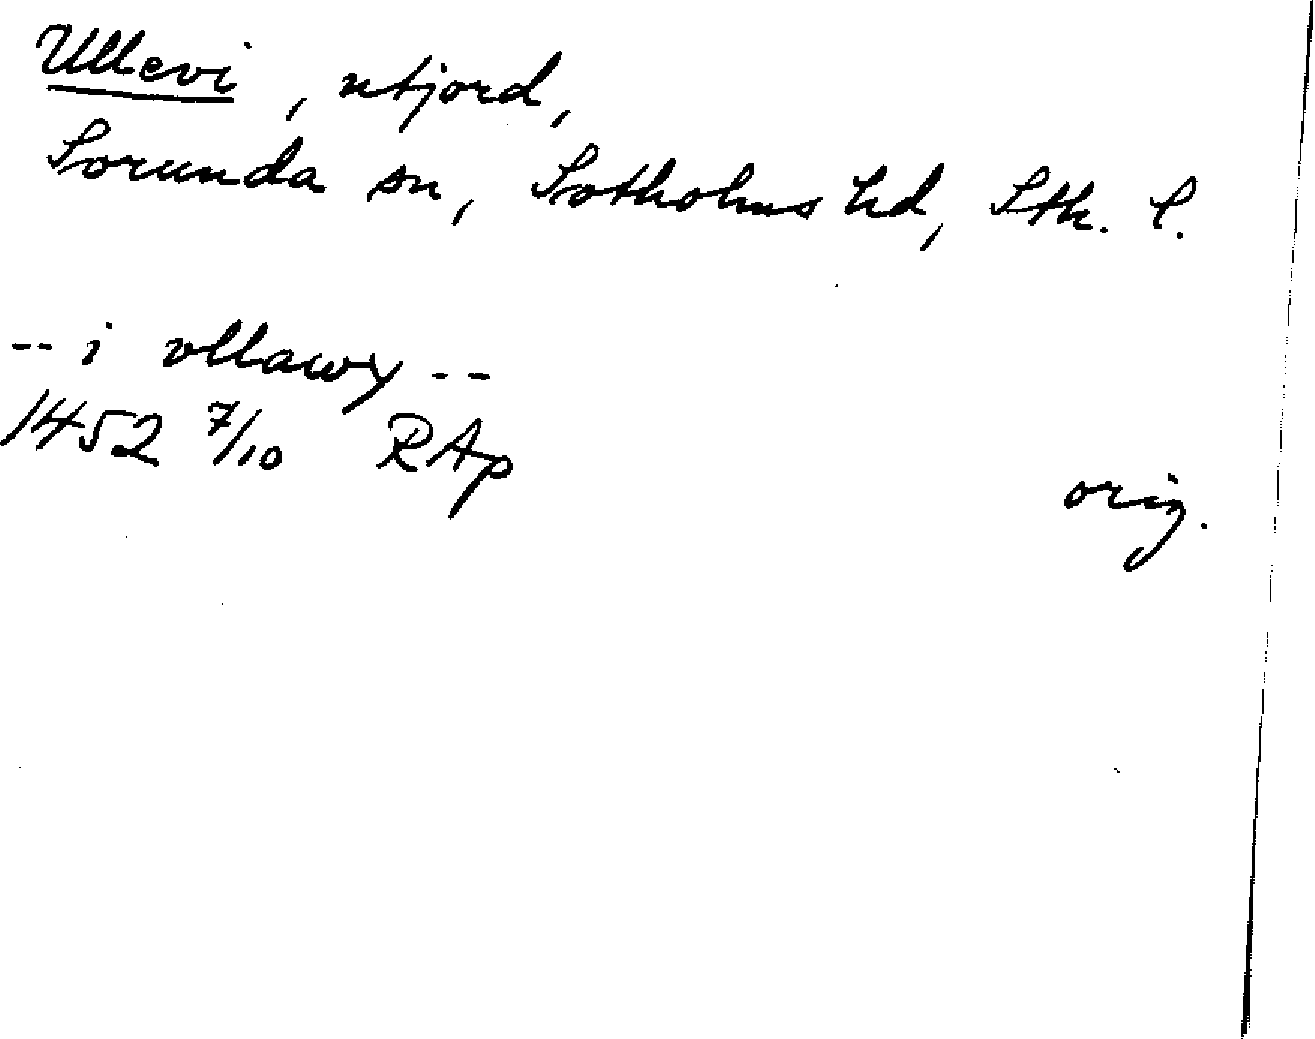 Ullevi, utjord,
Sorunda sn, Sotholms hd, Sth. l.
-- i vllawy --
1452 7/10 RAp
orig.